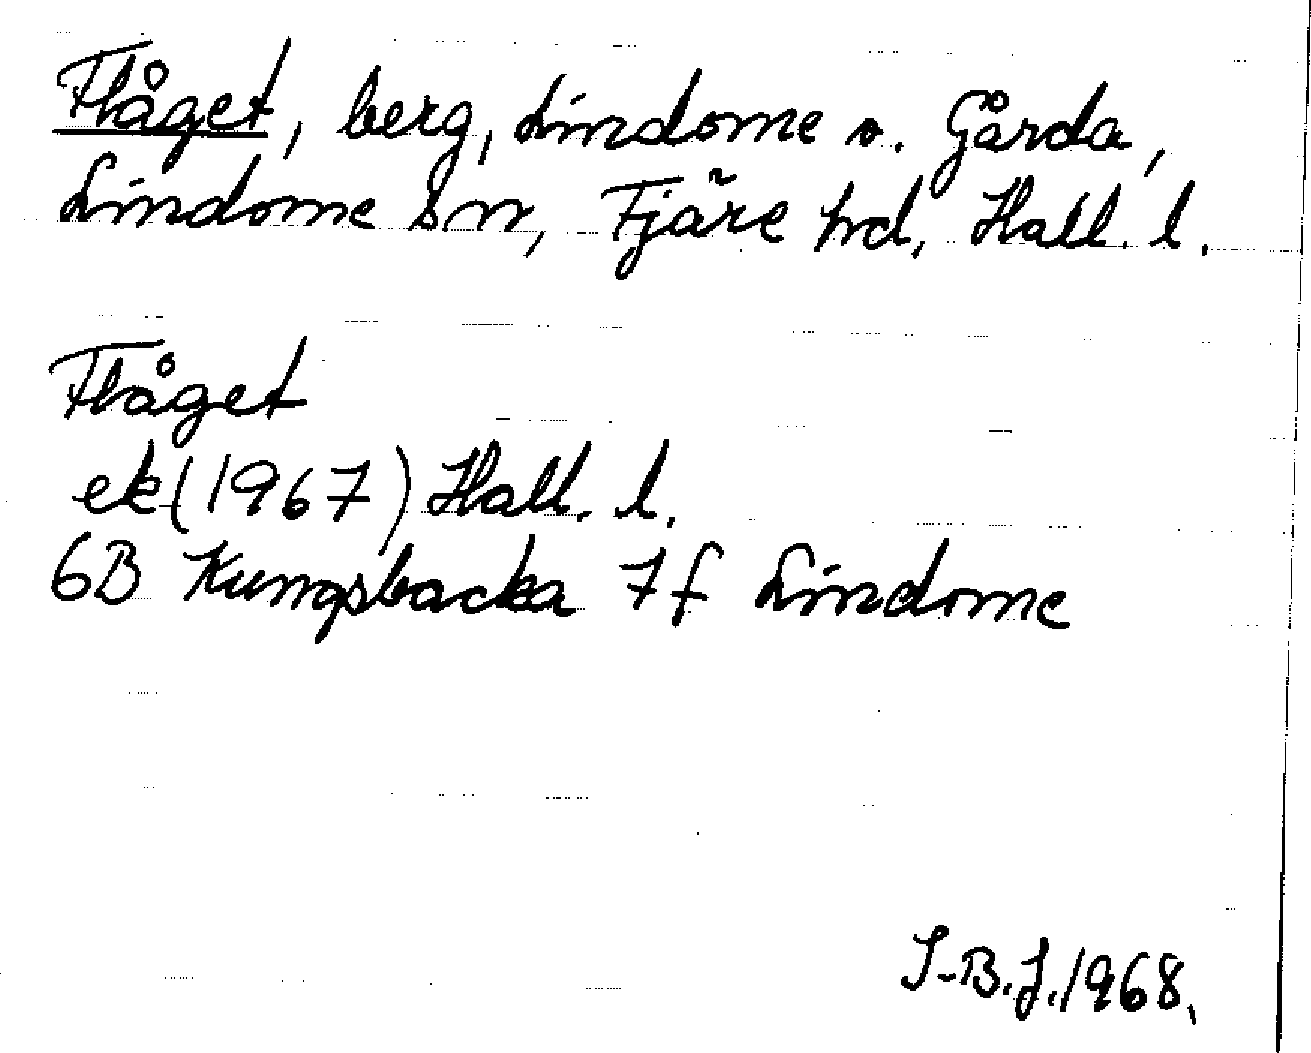 Flåget, berg, Lindome o. Gårda,
Lindome sn, Fjäre hd, Hall. l.
Flåget
ek (1967) Hall. l.
6B Kungsbacka 7f Lindome
I-B.J. 1968.